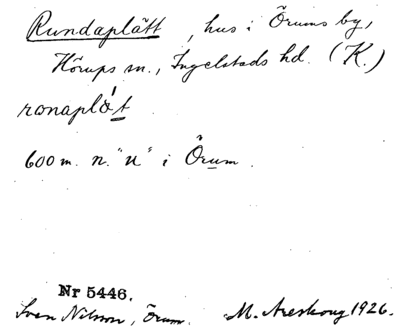 Rundaplätt, hus i Örums by,
Hörups sn., Ingelstads hd. (K.)
ronaplät
600 m. n. "u" i Örum.
Nr 5446.
Sven Nilsson, Örum. M. Areskoug 1926.